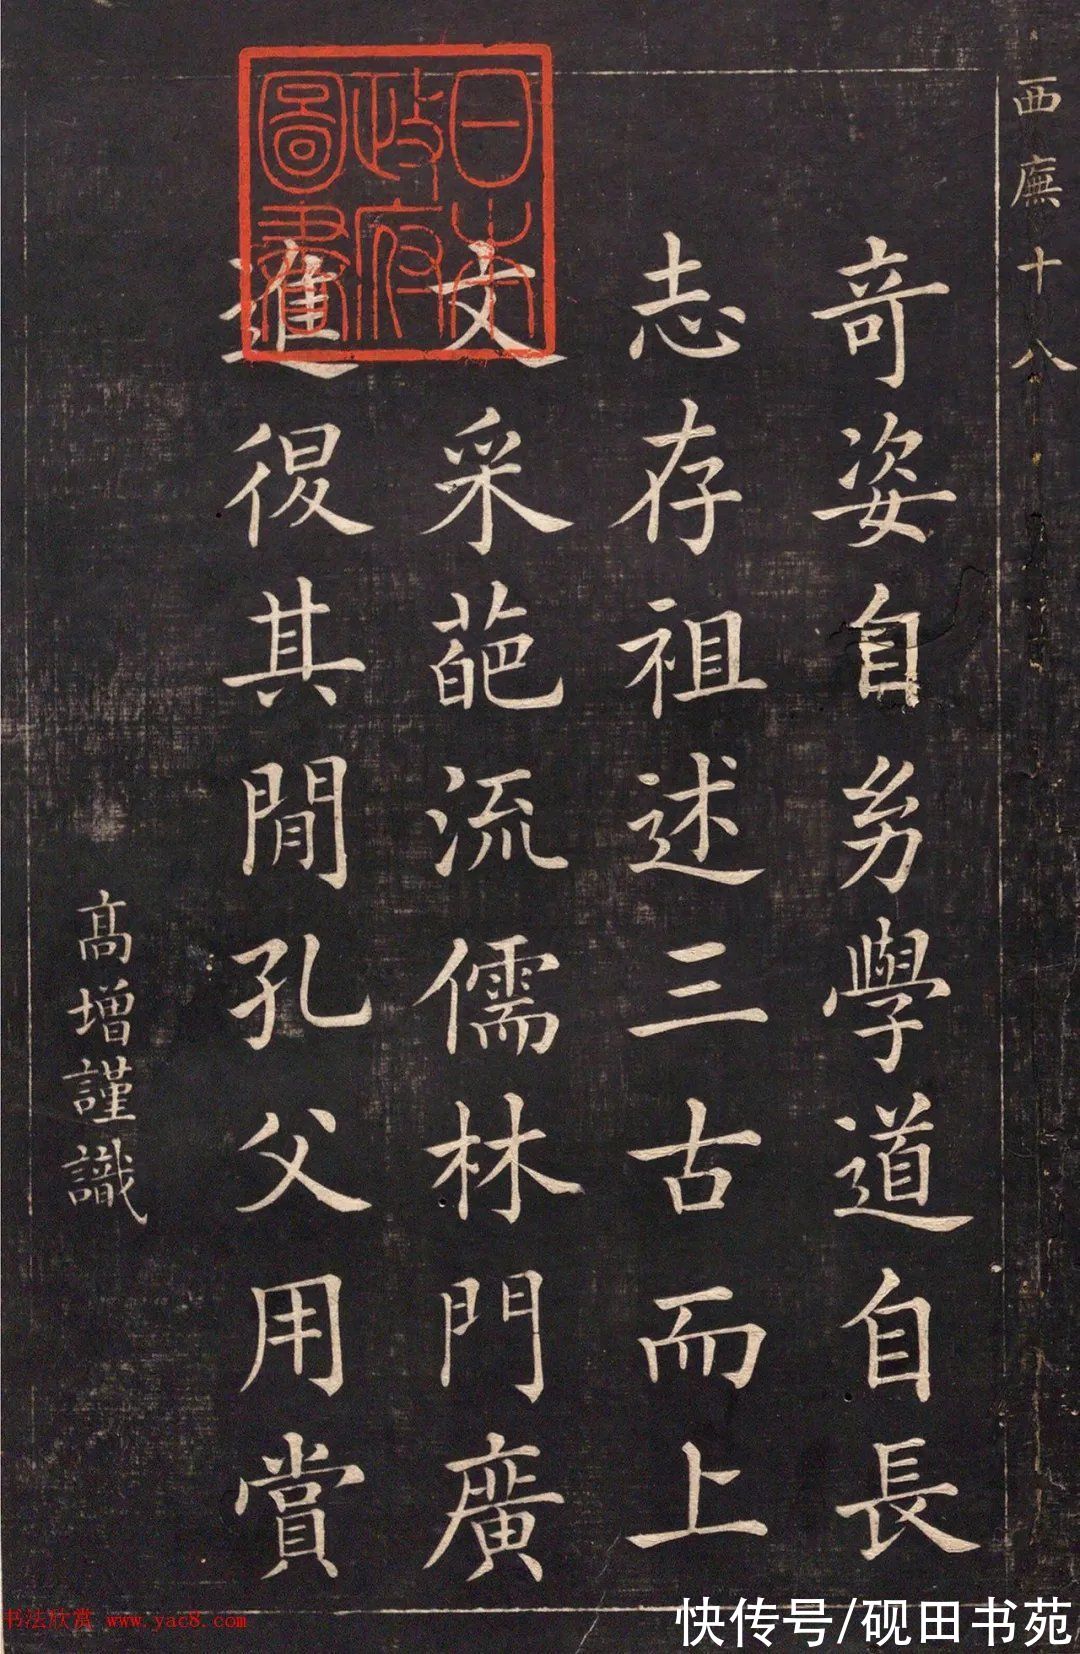 西廡十八
奇姿自㓜學道自長
志存祖述三古而上
文采葩流儒林門廣
進退其間孔父用賞
高增謹識
日本
政府
圖書
书法欣赏 www.yac8.com
快传号/砚田书苑